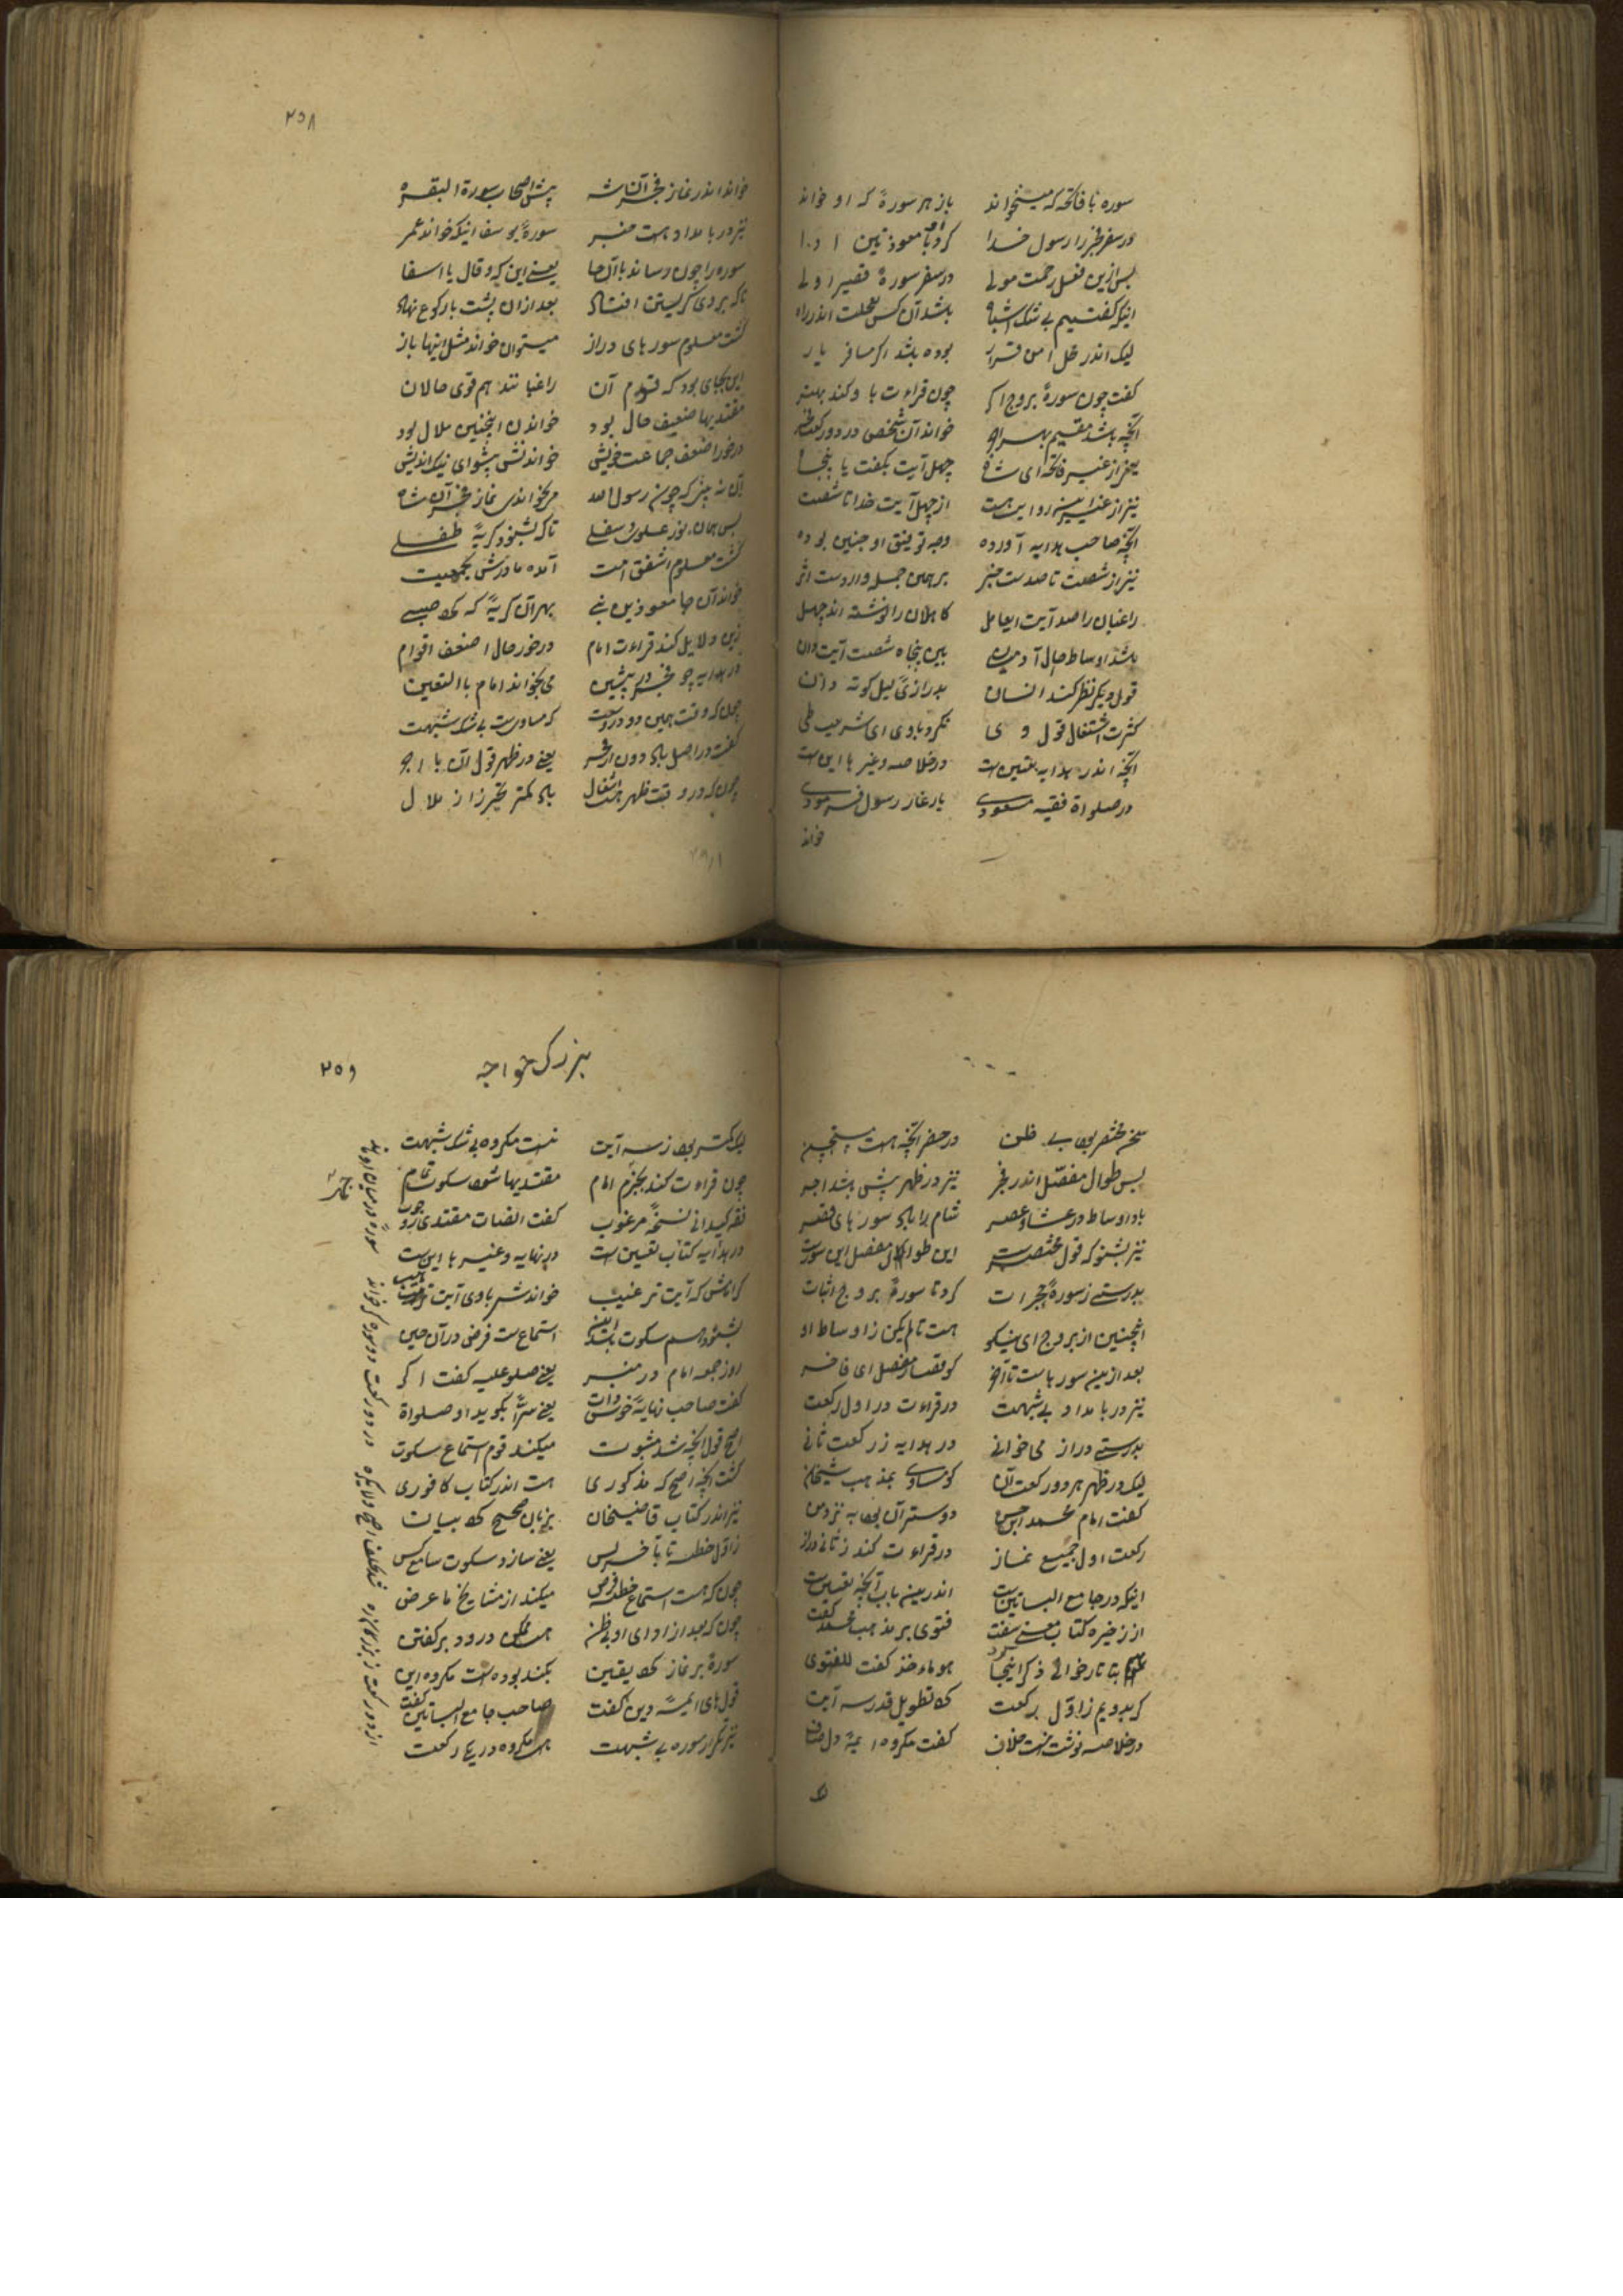 سوره با فاتحه که میخواند باز هر سورهٔ که او خواند
در سفر فجر را رسول خدا کرد با معوذتین ادا
پس ازین فضل رحمت مولی در سفر سورهٔ قصیر اولی
اینکه گفتیم بی شک اشباه باشد آن کس بعجلت اندر راه
لیک اندر محل امن قرار بوده باشد اگر مسافر یار
گفت چون سورهٔ بروج اگر چون قراءت با و کند بهتر
آنچه باشد مقیم خواند آن شخص در دو رکعت
یعنی از غیر فاتحه ای شاه چهل آیت بگفت یا پنجاه
نیز از غیر این روایت هست از چهل آیت خدا تا شصت
آنچه صاحب هدایه آورده وجه توفیق او چنین بوده
نیز از شصت تا صدست خبر بر همین جمله واردست اثر
راغبان را صد آیت ای عامل کاهلان را نوشته اند چهل
باشد اوساط حال آدمیان بین پنجاه شصت آیت دان
قول دیگر نظر کند انسان بدرازی لیل کوته دان
کثرت اشتغال قول وی نگرد با وی ای شریعت
آنچه اندر هدایه تعیین است در خلاصه و غیرها این است
در صلواة فقیه مسعودی یار غار رسول فرمودی
خواند
۲۵۸
خواند اندر نماز فجر آن شه پیش اصحاب سورة البقره
نیز در بامداد هست خبر سورهٔ یوسف اینکه خواند عمر
سوره را چون رساند با آن جا یعنی این که و قال یا اسفا
تا که بر وی گریستن افتاد بعد از آن پشت با رکوع نهاد
گشت معلوم سورهای دراز میتوان خواند مثل اینها باز
این بجای بود که قوم آن راغبانند هم قوی حالان
مقتدیها ضعیف حال بود خواندن اینچنین ملال بود
در خور اضعف جماعت خویش خواندنش پیشوای نیک اندیش
آن نه بینی که چون رسول الله میبخواندی نماز فجر آن شاه
پس همان نور علوی و سفلی تا که بشنود گریهٔ طفلی
گشت معلوم اشفق امت آمده مادرش بجمعیت
خواند آن جا معوذتین نبی بهر آن گریهٔ که کرد صبی
زین دلایل کند قراءت امام در خور حال اضعف اقوام
در هدایه چو فجر در پیشین می بخواند امام با التعیین
چون که وقت همین دو در وسعت که مساویست بی شک شبهت
گفت در اصل باید دون از فجر یعنی در ظهر قول آن با اجر
چون که در وقت ظهر هست اشغال باید کمتر تحرز از ملال
سخن مختصر بود بی ظن در حضر آنچه هست مستحسن
پس طوال مفصل اندر فجر نیز در ظهر پیش باشد اجر
باد اوساط در عشا و عصر شام را باید سورهای قصر
نیز بشنو که قول مختصرست این طوال مفصل این سورست
بدرستی ز سورهٔ حجرات کرد تا سورهٔ بروج اثبات
اینچنین از بروج ای نیکو هست تا لم یکن ز اوساط او
بعد ازین سورهاست تا آخر کو قصار مفصل ای فاخر
نیز در بامداد بی شبهت در قراءت در اول رکعت
بدرستی دراز می خوانی در هدایه ز رکعت ثانی
لیک در ظهر هر دو رکعت آن کو مساوی بمذهب شیخان
گفت امام محمد ابن حسن دوستر آن بود به نزد من
رکعت اول جمیع نماز در قراءت کند ز ثانی دراز
اینکه در جامع البساتین است اندرین باب آنچه تعیین است
از ذخیره کتاب معنی سفت فتوی بر مذهب محمد گفت
تاتارخانی ذکر اینجا هو ماخذ گفت للفتوی
گر بدویم ز اول رکعت که تطویل قدر سه آیت
در خلاصه نوشت نیست خلاف گفت مکروه ایمهٔ دل صاف
لیک
بزرک خواجه
۲۵۹
لیک کمتر بود ز سه آیت نیست مکروه بی شک شبهت
چون قراءت کند بجزم امام مقتدیها شود سکوت تمام
فقه کیدانی نسخهٔ مرغوب گفت انصات مقتدی ز وجوب
در هدایه کتاب تعیین است در نهایه و غیرها این است
گر امامش که آیت ترغیب خواند شد با وی آیت ترهیب
بشنود هم سکوت باشد ایستن استماع ست فرض در آن حین
روز جمعه امام در منبر یعنی صلو علیه گفت اگر
گفت صاحب نهایه خوش ذات یعنی سراً بگوید او صلواة
اصح قول آنچه شد مثبوت میکند قوم استماع سکوت
گفت آنچه اصح که مذکوری هست اندر کتاب کافوری
نیز اندر کتاب قاضیخان بزبان صحیح کرد بیان
ز اول خطبه تا بآخر پس یعنی سازد سکوت سامع کس
چون که هست استماع خطبه فرض میکند از مشایخ ما عرض
چون که بعد از ادای او بی ظن هست مکروه درود بر گفتن
سوره بر نماز کرد یقین بکند بوده ست مکروه این
قول های ایمهٔ دین گفت صاحب جامع البساتین گفت
نیز تکرار سوره بی شبهت هست مکروه در یک رکعت